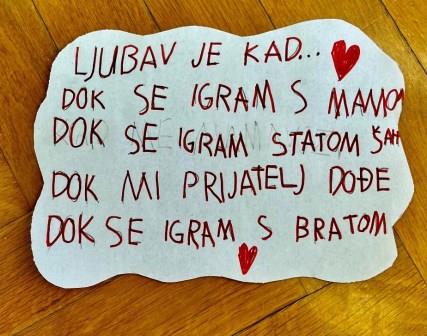 LJUBAV JE KAD...
DOK SE IGRAM S MAMOM
DOK SE IGRAM STATOM ŠAH
DOK MI PRIJATELJ DOĐE
DOK SE IGRAM S BRATOM